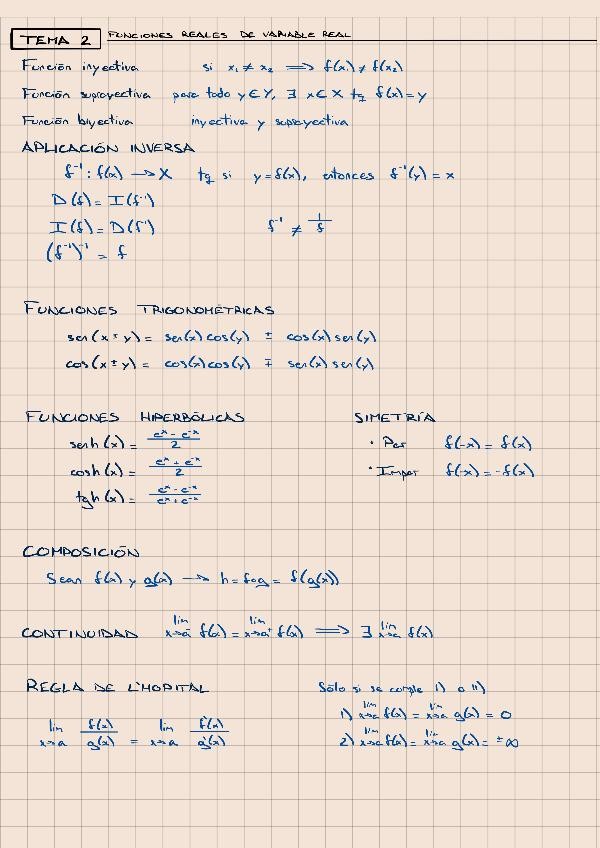 TEMA 2 FUNCIONES REALES DE VARIABLE REAL
Función inyectiva si x₁ ≠ x₂ ⟹ f(x₁) ≠ f(x₂)
Función suprayectiva para todo y ∈ Y, ∃ x ∈ X tq f(x) = y
Función biyectiva inyectiva y suprayectiva
APLICACIÓN INVERSA
f⁻¹ : f(x) → X tq si y = f(x), entonces f⁻¹(y) = x
D(f) = I(f⁻¹)
I(f) = D(f⁻¹) f⁻¹ ≠ 1/f
(f⁻¹)⁻¹ = f
FUNCIONES TRIGONOMÉTRICAS
sen(x ± y) = sen(x) cos(y) ± cos(x) sen(y)
cos(x ± y) = cos(x) cos(y) ∓ sen(x) sen(y)
FUNCIONES HIPERBÓLICAS SIMETRÍA
senh(x) = (eˣ - e⁻ˣ)/2 · Par f(-x) = f(x)
cosh(x) = (eˣ + e⁻ˣ)/2 · Impar f(-x) = -f(x)
tgh(x) = (eˣ - e⁻ˣ)/(eˣ + e⁻ˣ)
COMPOSICIÓN
Sean f(x) y g(x) → h = f∘g = f(g(x))
CONTINUIDAD lim x→a⁻ f(x) = lim x→a⁺ f(x) ⟹ ∃ lim x→a f(x)
REGLA DE L'HOPITAL Sólo si se cumple 1) o 11)
1) lim x→a f(x) = lim x→a g(x) = 0
lim x→a f(x)/g(x) = lim x→a f'(x)/g'(x) 2) lim x→a f(x) = lim x→a g(x) = ±∞